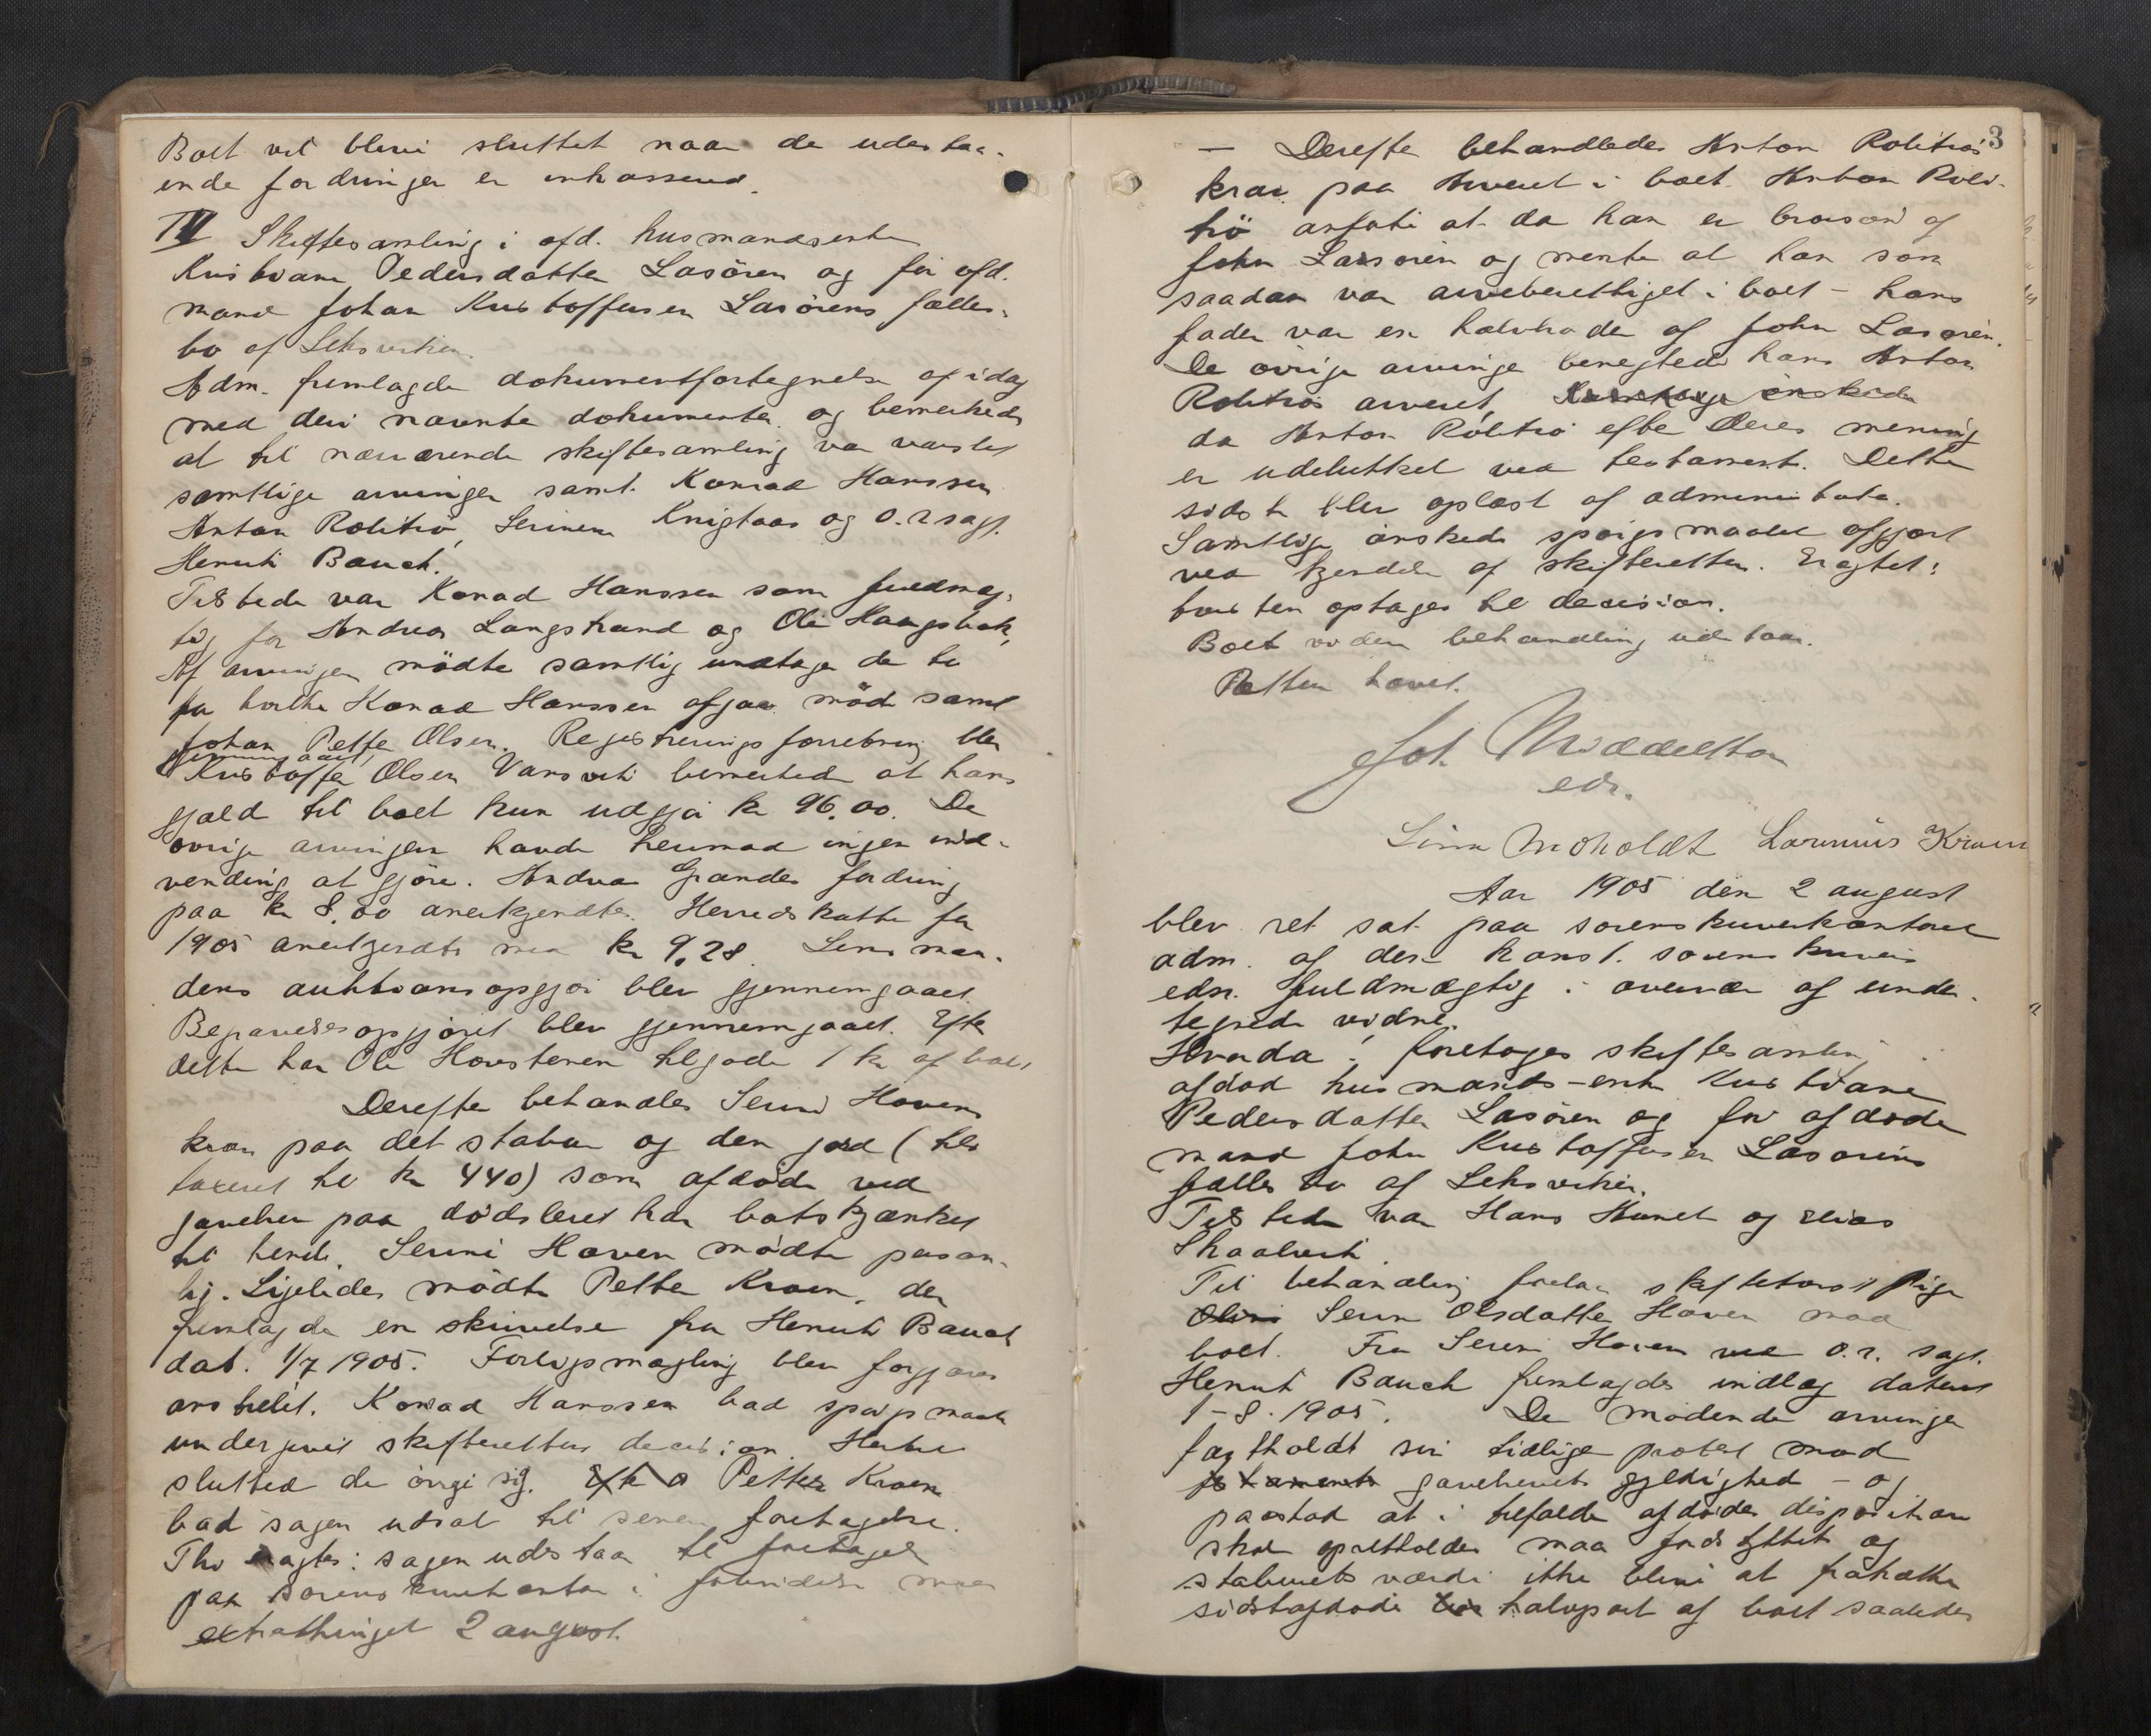 Boet vil blive sluttet naar de udestaa-
ende fordringer er inkasseret.
IV Skiftesamling i afd. husmandsenke
Kristiane Pedersdatter Lasören og før afd.
mand Johan Kristoffersen Lasörens fælles-
bo af Leksviken.
Adm. fremlagde dokumentfortegnelse af idag
med deri nævnte dokumenter og bemerkede
at til nærværende skiftesamling var varslet
samtlige arvinger samt Konrad Hanssen
Anton Rolitrö, Serine og o.r.sagf.
Henrik Bauck.
Tilstede var Konrad Hanssen som fuldmæg-
tig for Andreas Langstrand og Ole
Af arvingen mödte samtlig undtagen de to
for hvilke Konrad Hanssen afgav möde samt
Johan Petter Olsen. Registreringsforretning blev
gjennemgaaet,
Kristoffer Olsen Vansvik bemerkede at hans
gjæld til boet kun udgjør kr 96.00. De
övrige arvingen havde herimod ingen ind-
vending at gjöre. Andreas Grandes fordring
paa kr 8.00 anerkjendtes. Herredskatten for
1905 anerkjendtes med kr 9,28. Lensman-
dens auktionsopgjör blev gjennemgaaet.
Begravelsesopgjöret blev gjennemgaaet. Efter
dette har Ole tilgode 1 kr af boet
Derefter behandles Serine Havens
krav paa det stabur og den jord (
taxeret til kr 440) som afdöde ved
gavebrev paa dödsleiet har bortskjænket
til hende. Serine Haven mödte person-
lig. Ligeledes mödte Petter Kroen, der
fremlagde en skrivelse fra Henrik Bauck
dat. 1/7 1905. Forligsmægling blev forgjæves
anstillet. Konrad Hanssen bad spörgsmaalet
undergivet skifterettens decision. Hertil
sluttede de övrige sig. Petter Kroen
bad sagen udsat til senere foretagelse.
Thi eragtes: sagen udstaar til foretagelse
paa sorenskriverkontor i forbindelse med
extrathinget 2 august.
3
— Derefter behandledes Anton Rolitrös
krav paa Arveret i boet. Anton Roli-
trö anförte at da han er brorsøn af
John Lasören og mente at han som
saadan var arveberettiget i boet – hans
fader var en halvbroder af John Lasören.
De övrige arvinge benegtede hans Anton
Rolitrös arveret, önskede
da Anton Rolitrö efter deres mening
er udelukket ved testament. Dette
sidste blev oplæst af administrator.
Samtlige önskede spörgsmaalet afgjort
ved kjendelse af skifteretten. Eragtet:
tvisten optages til decision.
Boet videre behandling udstaar.
Retten hævet.
Joh. Middelthon
edr.
Moholdt Laurnius Kroen
Aar 1905 den 2 august
blev ret sat paa sorenskriverkontoret
adm. af den konst. sorenskriver
edsv. fuldmægtig i overvær af under-
tegnede vidne.
Hvorda! foretages skiftesamling i
afdöd husmands-enke Kristiane
Pedersdatter Lasören og før afdöde
mand John Kristoffersen Lasörens
fællesbo af Leksviken.
Tilstede var Hans Hunet og Elias
Skaalvik.
Til behandling forelaa skiftetvist Pige
Olivi Serine Olsdatter Haven mod
boet. Fra Serine Haven ved o.r. sagf.
Henrik Bauck fremlagdes indlæg dateret
1-8-1905. De mödende arvinger
fastholdt sin tidlige protest mod
testaments gavebrevets gyldighed – og
paastod at i tilfælde afdödes disposition
skal opretholdes maa jordstykket og
staburets værdi ikke blive at fratrække
sidstafdödes halvpart af boet saaledes